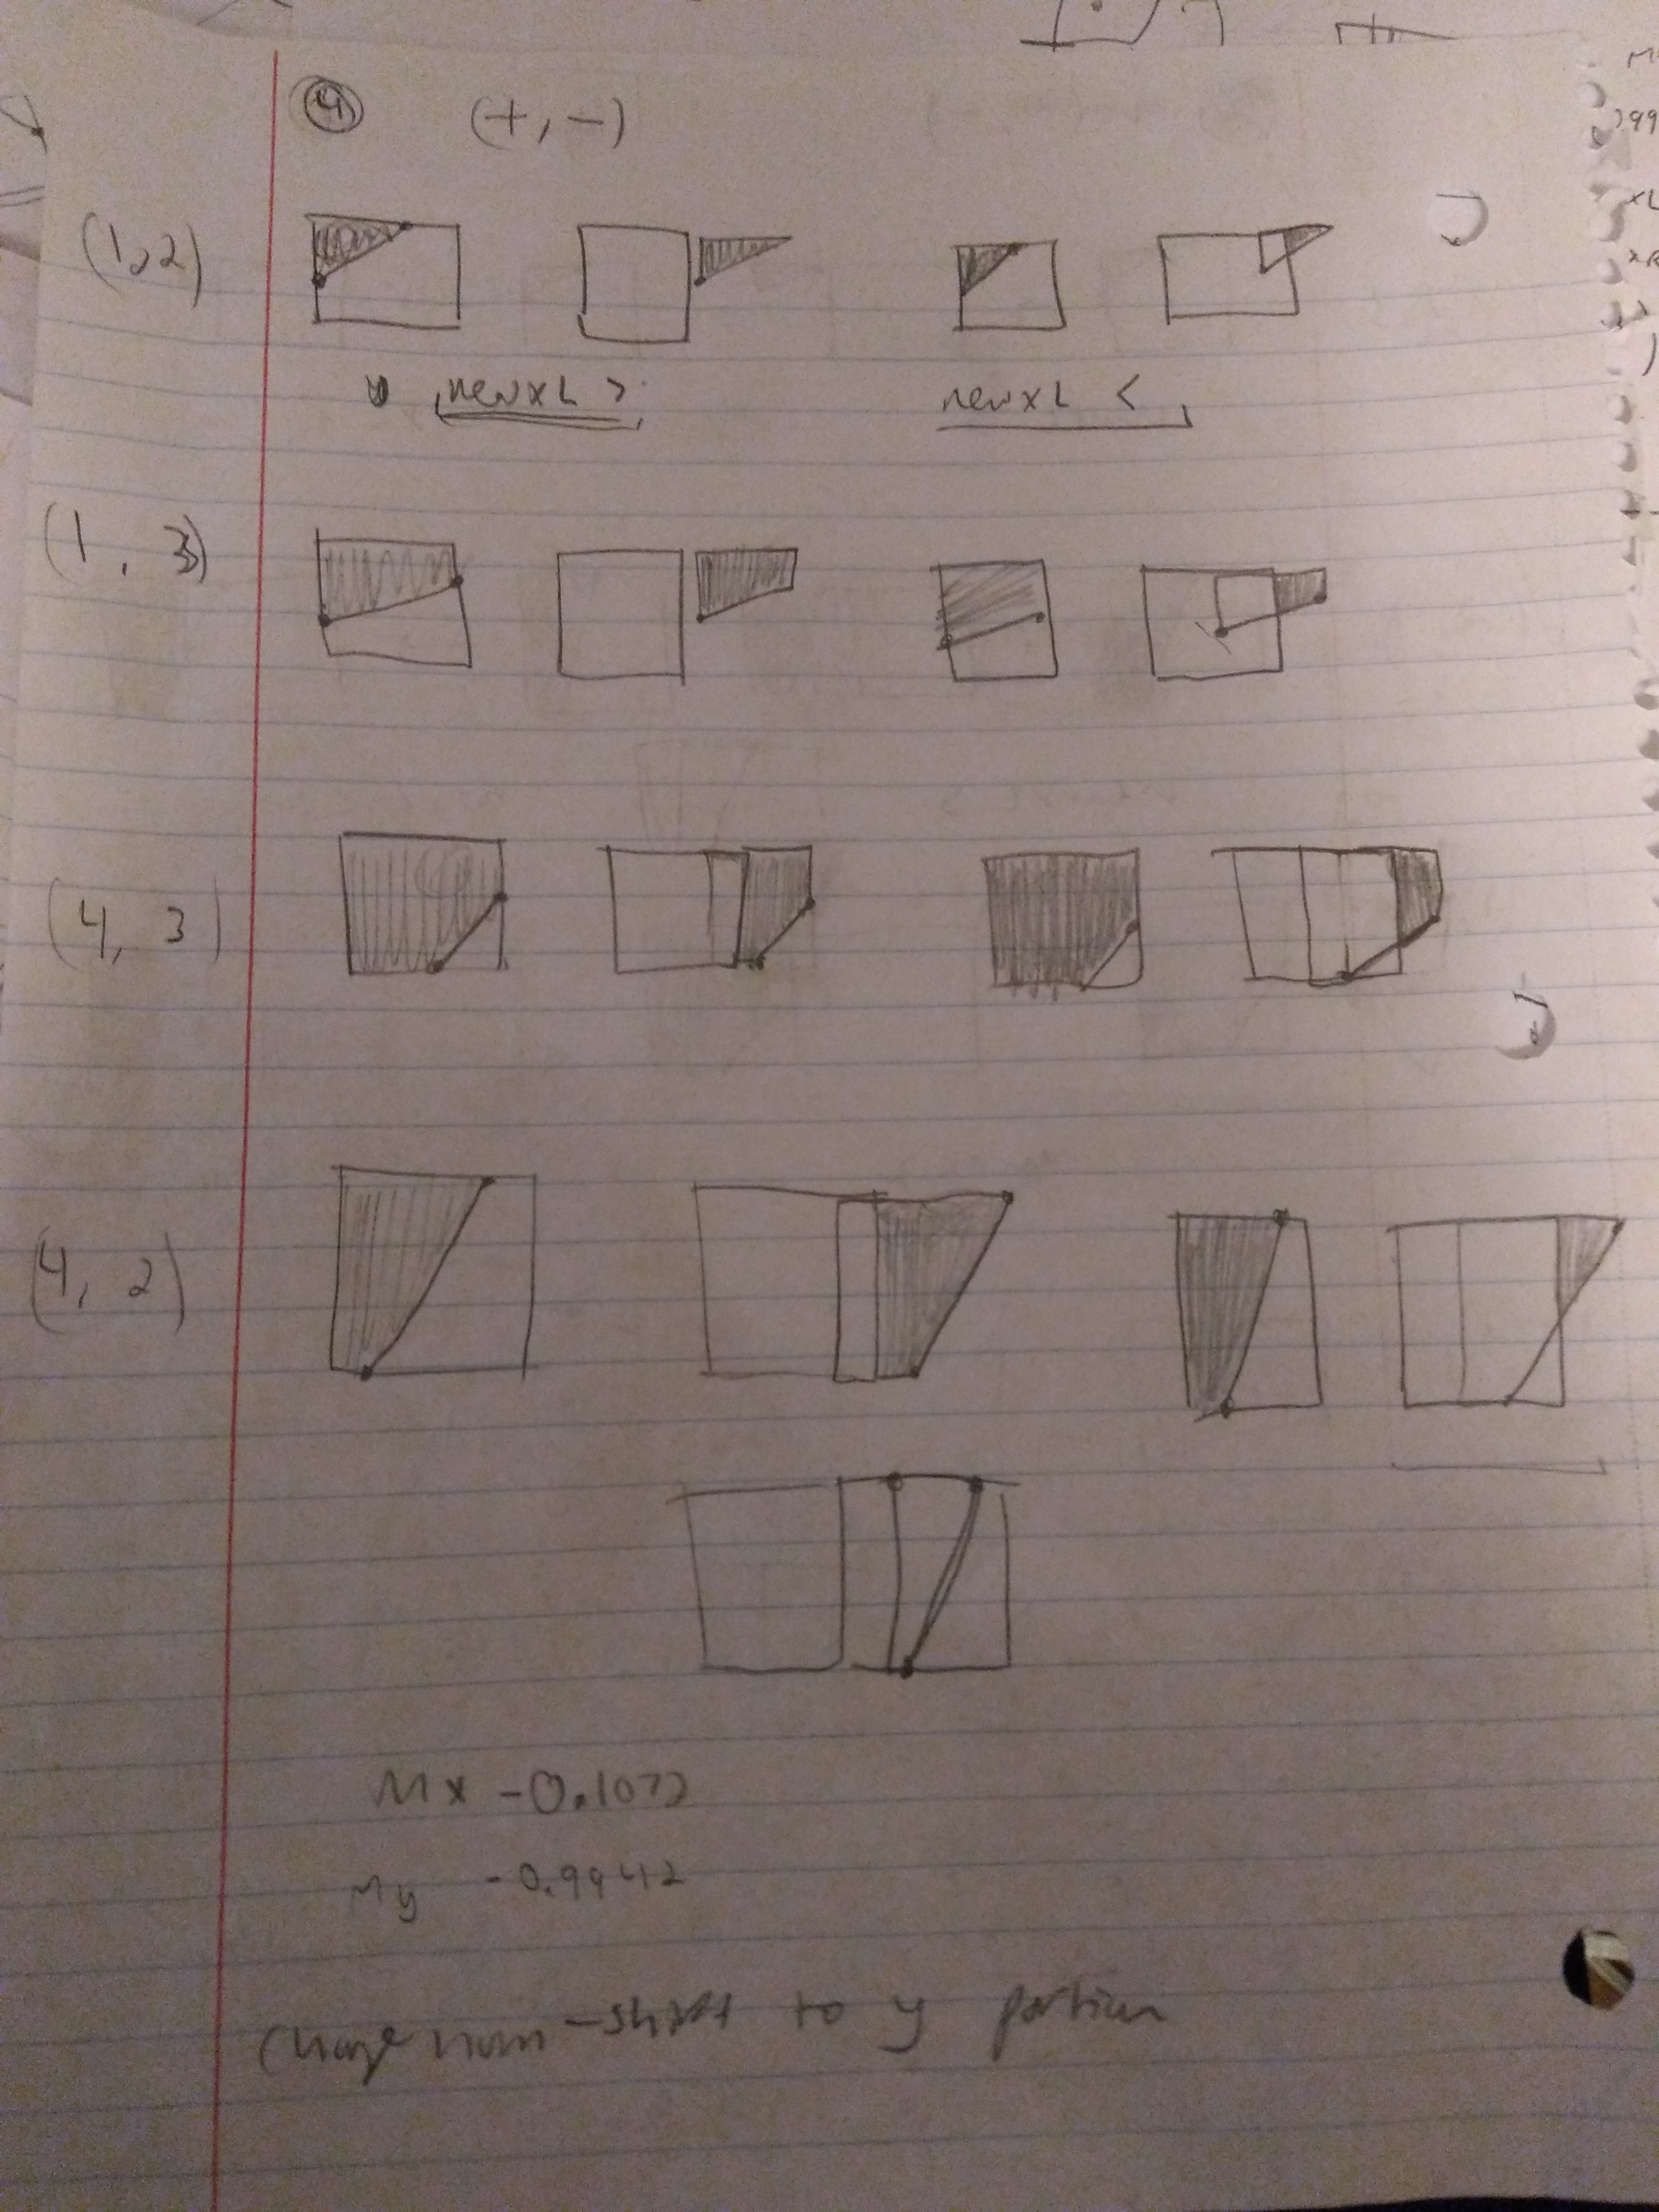 4 (+, -)
(1, 2)
new xL > new xL <
(1, 3)
(4, 3)
(4, 2)
Mx -0.1072
My -0.9942
Change num-shift to y portion